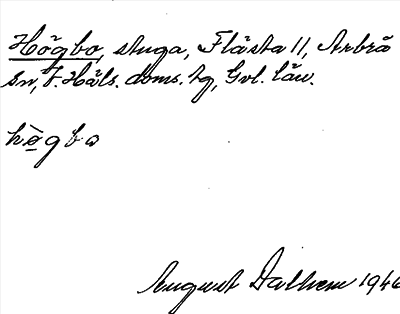 Högbo, stuga, Flästa 11, Arbrå
sn, V. Häls. doms. hg, Gvl. län.
hø̀gbo
August Dalhem 1946